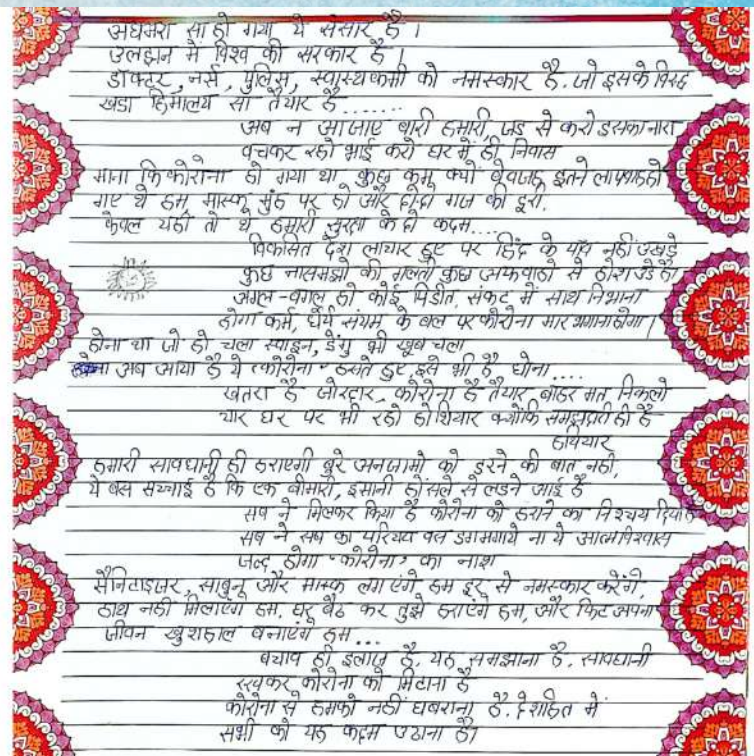 अधमरा सा हो गया ये संसार है।
उलझन में विश्व की सरकार है।
डॉक्टर, नर्स, पुलिस, स्वास्थ्यकर्मी को नमस्कार है. जो इसके विरुद्ध
खडा हिमालय सा तैयार है.......
अब न आ जाए बारी हमारी, जड से करो इसका नाश
बचकर रहो भाई करो घर में ही निवास
माना कि कोरोना हो गया था कुछ कम क्यों बेवजह इतने लापरवाह हो
गए थे हम, मास्क मुंह पर हो और दो-दो गज की दूरी.
केवल यही तो थे हमारी सुरक्षा के दो कदम....
विकसित देश लाचार हुए पर हिंद के पाँव नहीं उखड़े
कुछ नासमझो की गलती कुछ अफवाहो से होश उडे है।
अगल-बगल हो कोई पिडीत, संकट में साथ निभाना
होगा कर्म, धैर्य संयम के बल पर कोरोना मार भगाना होगा।
होना था जो हो चला स्वाइन, डेंगु भी खूब चला
अब आया है ये 'कोरोना' हसते हुए, इसे भी है धोना....
खतरा है जोरदार, कोरोना है तैयार, बाहर मत निकलो
यार घर पर भी रहो होशियार क्योंकि समझदारी ही है
हथियार
हमारी सावधानी ही हराएगी बुरे अनजामो को डरने की बात नही,
ये बस सच्चाई है कि एक बीमारी, इंसानी हौसले से लडने आई है
सब ने मिलकर किया है कोरोना को हराने का निश्चय
सब ने सब का परिचय बस डगमगाये ना ये आत्मविश्वास
जल्द होगा 'कोरोना' का नाश
सैनिटाइजर, साबुन और मास्क लगाएंगे हम दूर से नमस्कार करेंगे,
हाथ नहीं मिलाएंगे हम. घर बैठ कर तुझे हराएंगे हम, और फिट अपना
जीवन खुशहाल बनाएंगे हम...
बचाव ही इलाज है, यह समझाना है. सावधानी
रखकर कोरोना को मिटाना है
कोरोना से हमको नहीं घबराना है. देशहित में
सभी को यह कदम उठाना है।